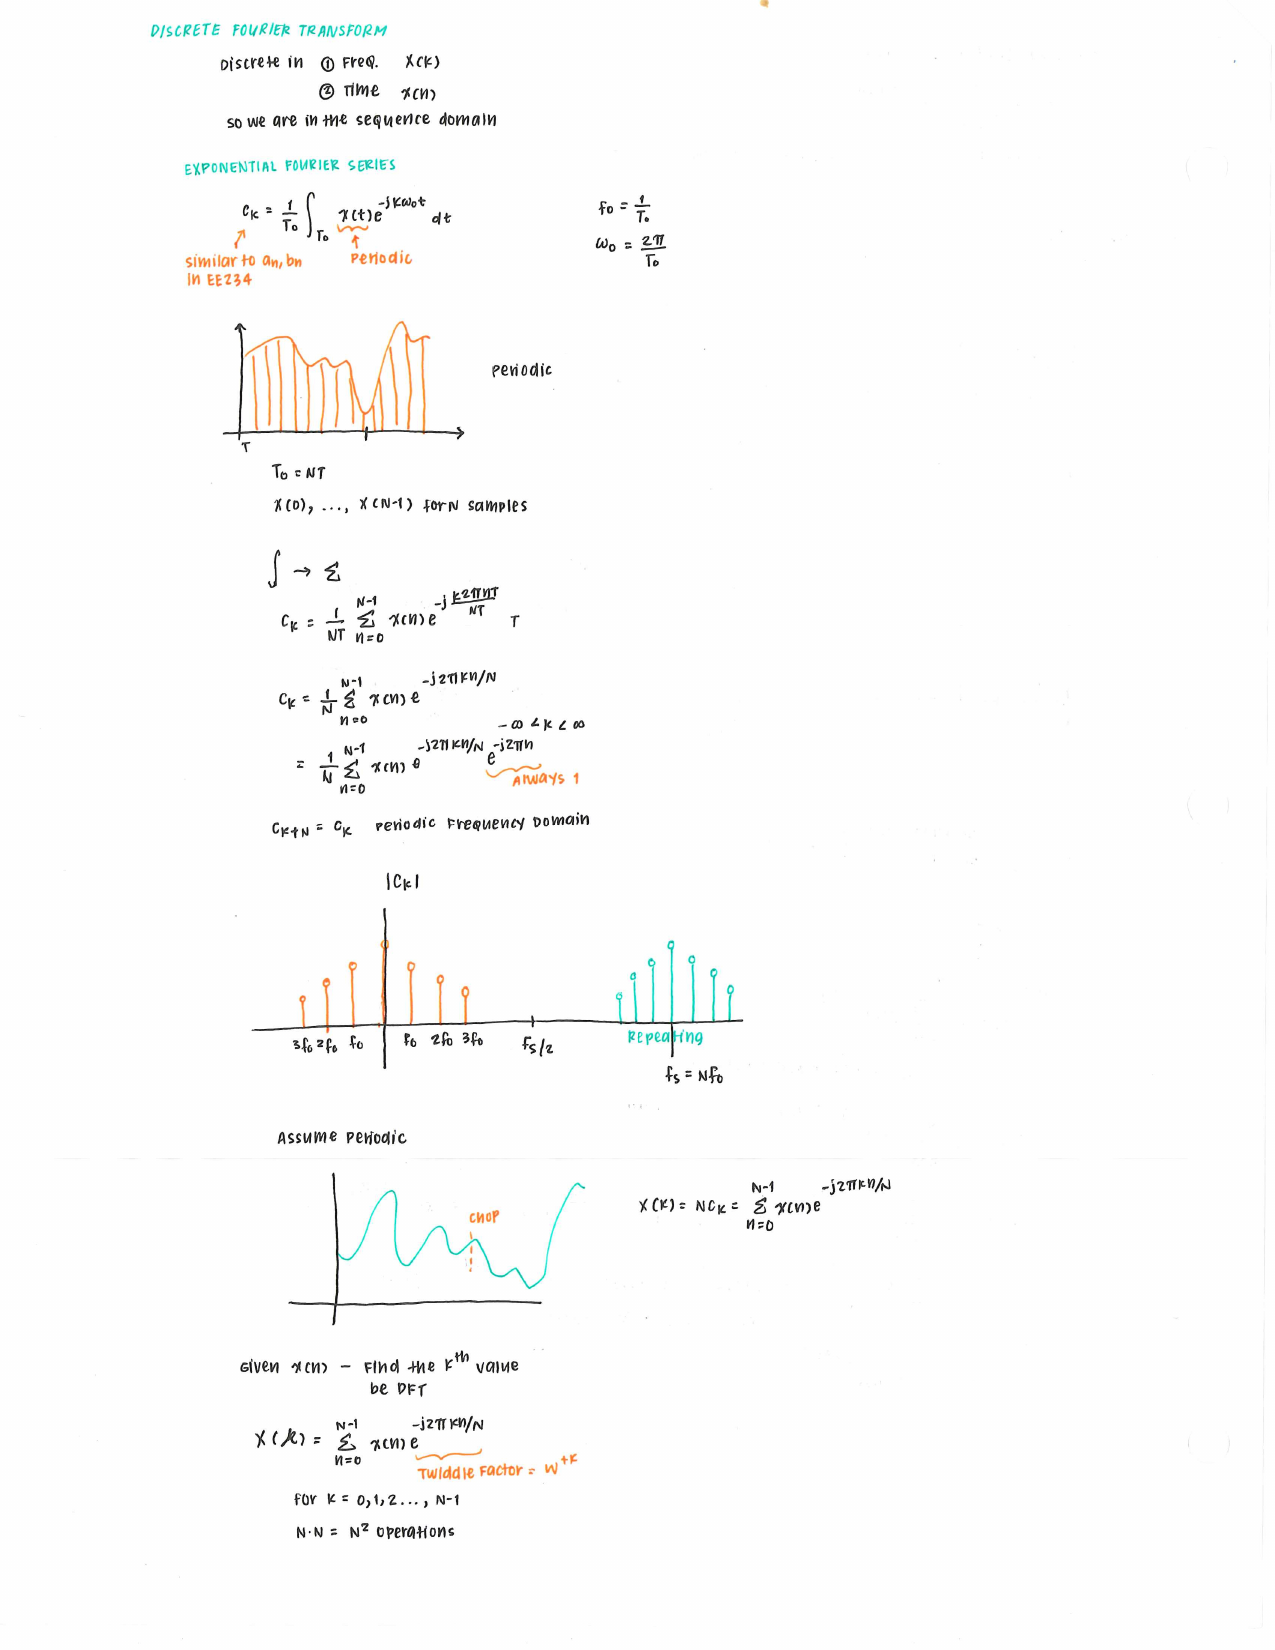 DISCRETE FOURIER TRANSFORM
Discrete in ① Freq. X(k)
② Time x(n)
so we are in the sequence domain
EXPONENTIAL FOURIER SERIES
Ck = 1/T₀ ∫T₀ x(t)e^-jkω₀t dt
f₀ = 1/T₀
ω₀ = 2π/T₀
similar to an, bn
in EE234
Periodic
Periodic
T
T₀ = NT
x(0), ..., x(N-1) for N samples
∫ → Σ
Ck = 1/NT Σ(n=0, N-1) x(n)e^-j k2πnT/NT T
Ck = 1/N Σ(n=0, N-1) x(n)e^-j2πkn/N
-∞ < k < ∞
= 1/N Σ(n=0, N-1) x(n)e^-j2πkn/N e^-j2πn
Always 1
Ck+N = Ck Periodic Frequency Domain
|Ck|
3f₀ 2f₀ f₀ f₀ 2f₀ 3f₀ Fs/2 Repeating
fs = Nf₀
Assume Periodic
CHOP
X(k) = NCk = Σ(n=0, N-1) x(n)e^-j2πkn/N
Given x(n) - Find the kth value
be DFT
X(k) = Σ(n=0, N-1) x(n)e^-j2πkn/N
Twiddle Factor = W^+k
for k = 0,1,2..., N-1
N·N = N² operations